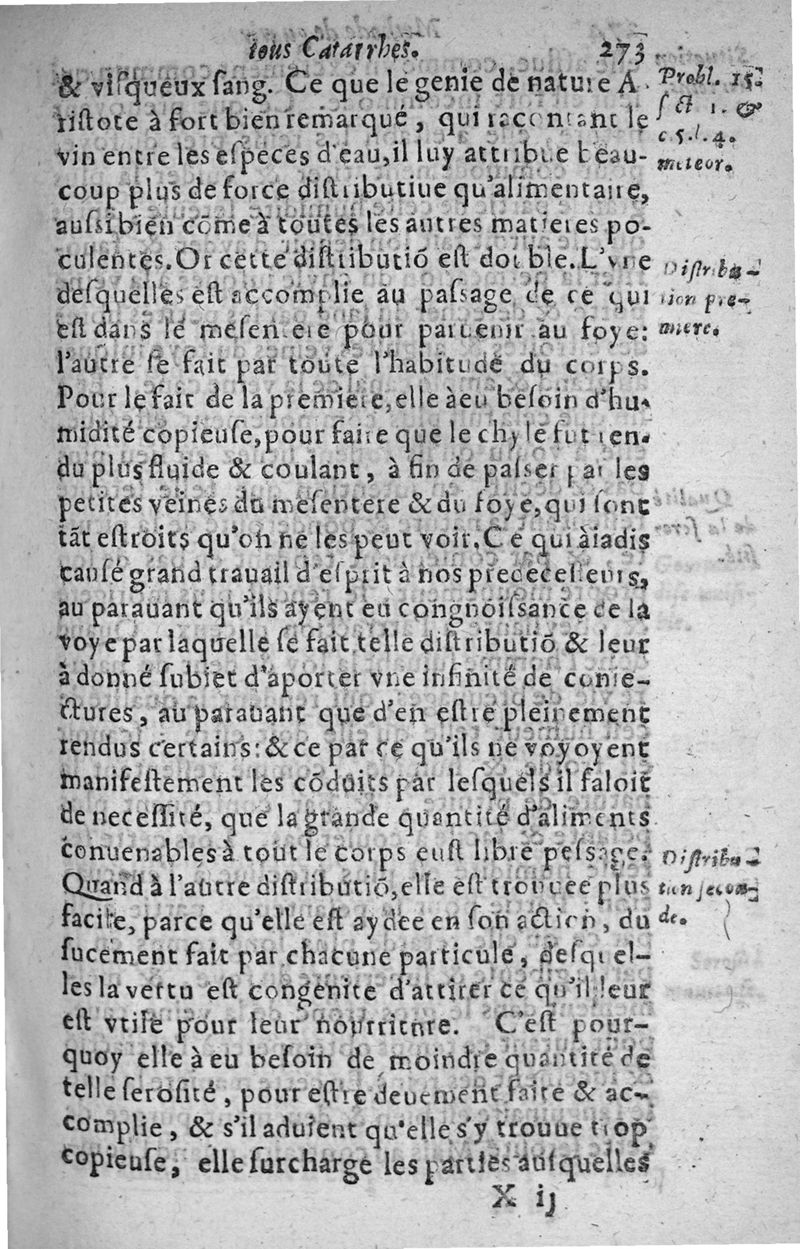 tous Catarrhes. 273
& viſqueux ſang. Ce que le genie de nature A-
riſtote à fort bien remarqué, qui racontant le
vin entre les eſpeces d'eau, il luy attribue beau-
coup plus de force diſtributiue qu'alimentaire,
auſsi bien cõme à toutes les autres matieres po-
culentes. Or cette diſtributiõ eſt double. L'vne
deſquelles eſt accomplie au paſsage de ce qui
eſt dans le meſentere pour paruenir au foye:
l'autre ſe fait par toute l'habitude du corps.
Pour le fait de la premiere, elle à eu beſoin d'hu-
midité copieuſe, pour faire que le chyle fut ren-
du plus fluide & coulant, à fin de paſser par les
petites veines du meſentere & du foye, qui ſont
tãt eſtroits qu'on ne les peut voir. Ce qui à iadis
cauſé grand trauail d'eſprit à nos predeceſſeurs,
au parauant qu'ils ayent eu congnoiſsance de la
voye par laquelle ſe fait telle diſtributiõ & leur
à donné ſubiet d'aporter vne infinité de conie-
ctures, au parauant que d'en eſtre pleinement
rendus certains: & ce par ce qu'ils ne voyoyent
manifeſtement les cõduits par leſquels il faloit
de neceſſité, que la grande quantité d'aliments
conuenables à tout le corps euſt libre peſsage.
Quand à l'autre diſtributiõ, elle eſt trouuee plus
facile, parce qu'elle eſt aydee en ſon action, du
ſucement fait par chacune particule, deſquel-
les la vertu eſt congenite d'attirer ce qu'il leur
eſt vtile pour leur nourriture. C'eſt pour-
quoy elle à eu beſoin de moindre quantité de
telle ſeroſité, pour eſtre deuement faite & ac-
complie, & s'il aduient qu'elle s'y trouue trop
copieuſe, elle ſurcharge les parties auſquelles
X ij
Probl. 15.
ſect. 1. &
c. 5. l. 4.
meteor.
Diſtribu-
tion pre-
miere.
Diſtribu-
tion ſecon-
de.